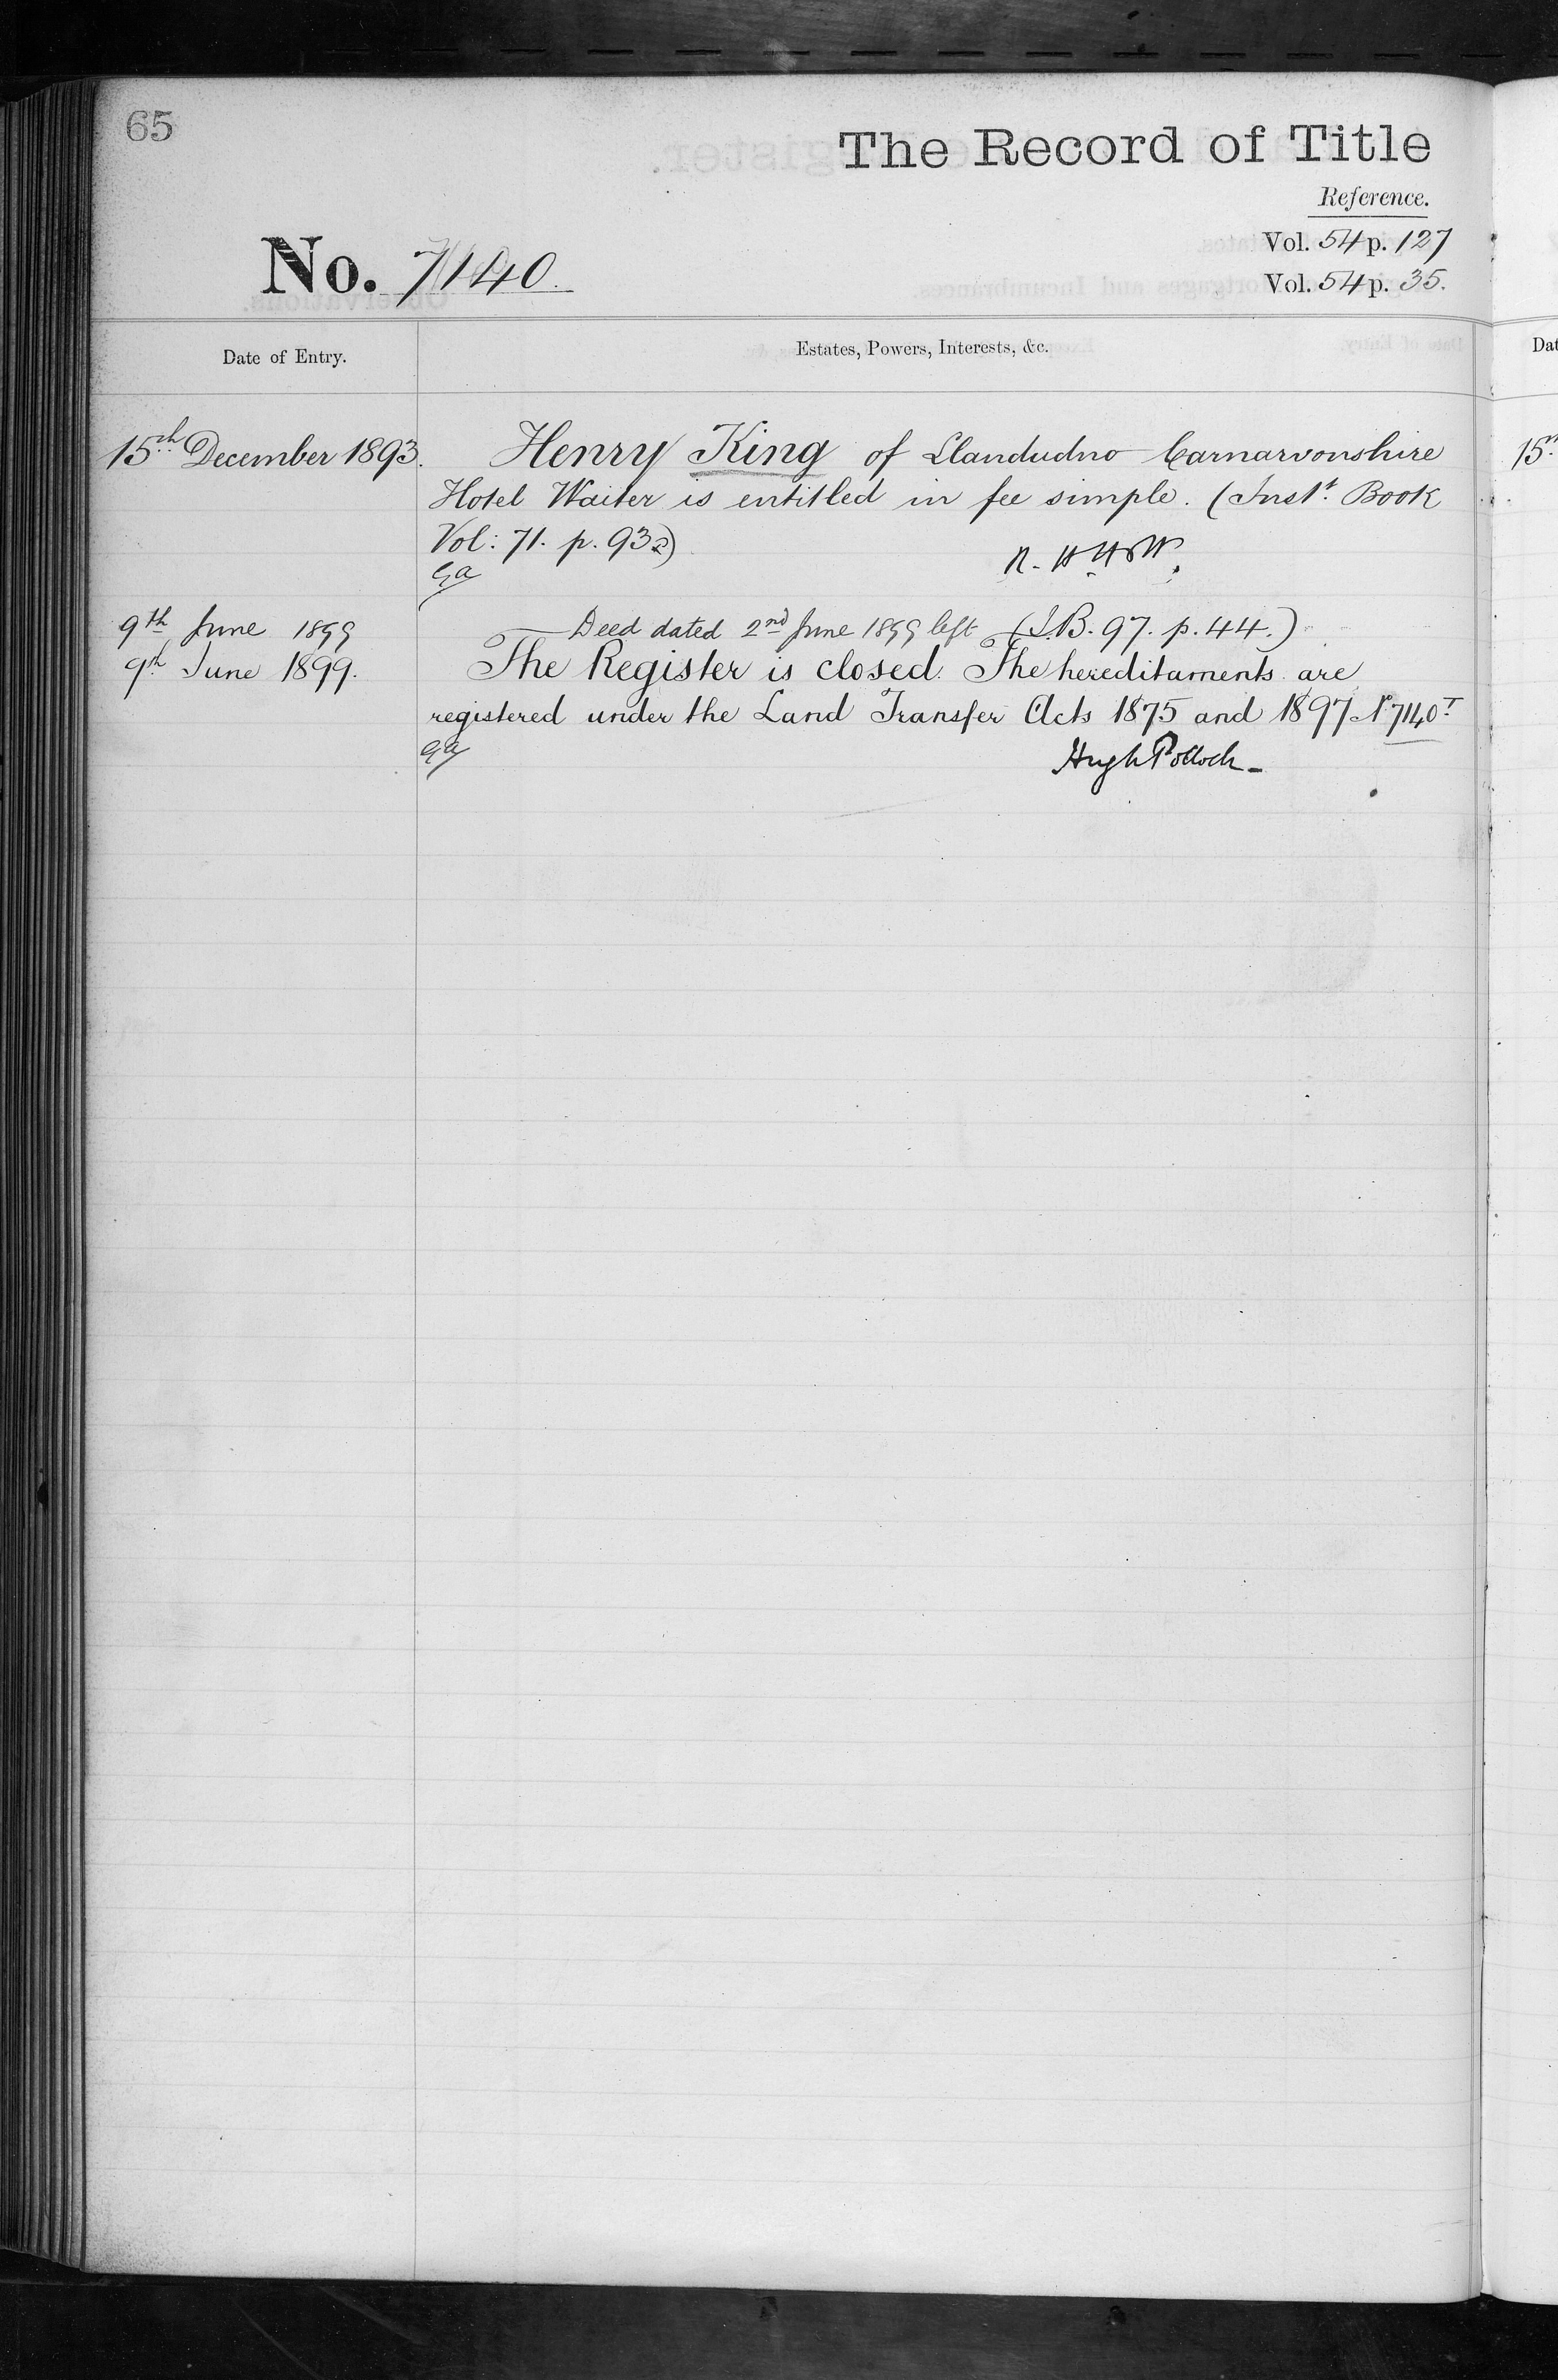 65
The Record of Title
Reference.
Vol. 54 p. 127
No. 7140.
Vol. 54 p. 35.
Date of Entry.
Estates, Powers, Interests, &c.
Dat
15th December 1893.
Henry King of Llandudno Carnarvonshire
Hotel Waiter is entitled in fee simple. (Inst. Book
Vol: 71. p. 93a)
Ga
15th
9th June 1899
Deed dated 2nd June 1899 left (I.B. 97. p. 44.)
9th June 1899.
The Register is closed. The hereditaments are
registered under the Land Transfer Acts 1875 and 1897 No 7140T
Ga
Hugh Pollock